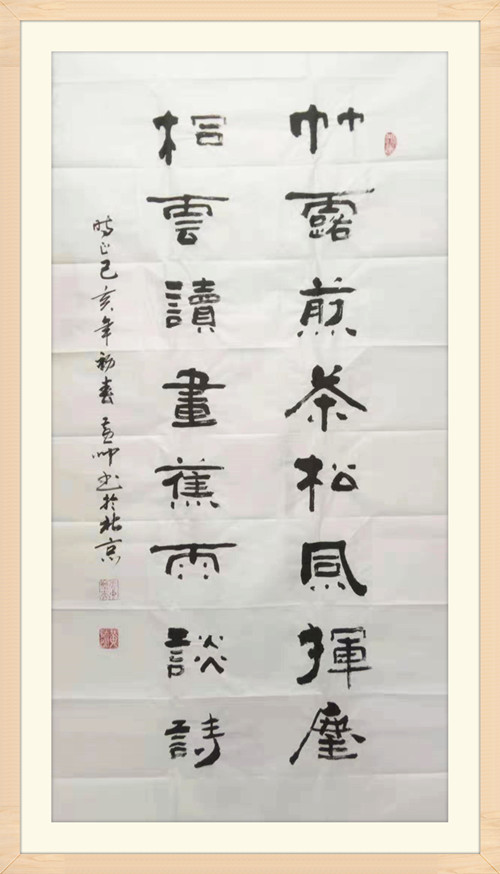 竹露煎茶松風揮麈
桐雲讀畫蕉雨談詩
時在己亥年初春帅书於北京